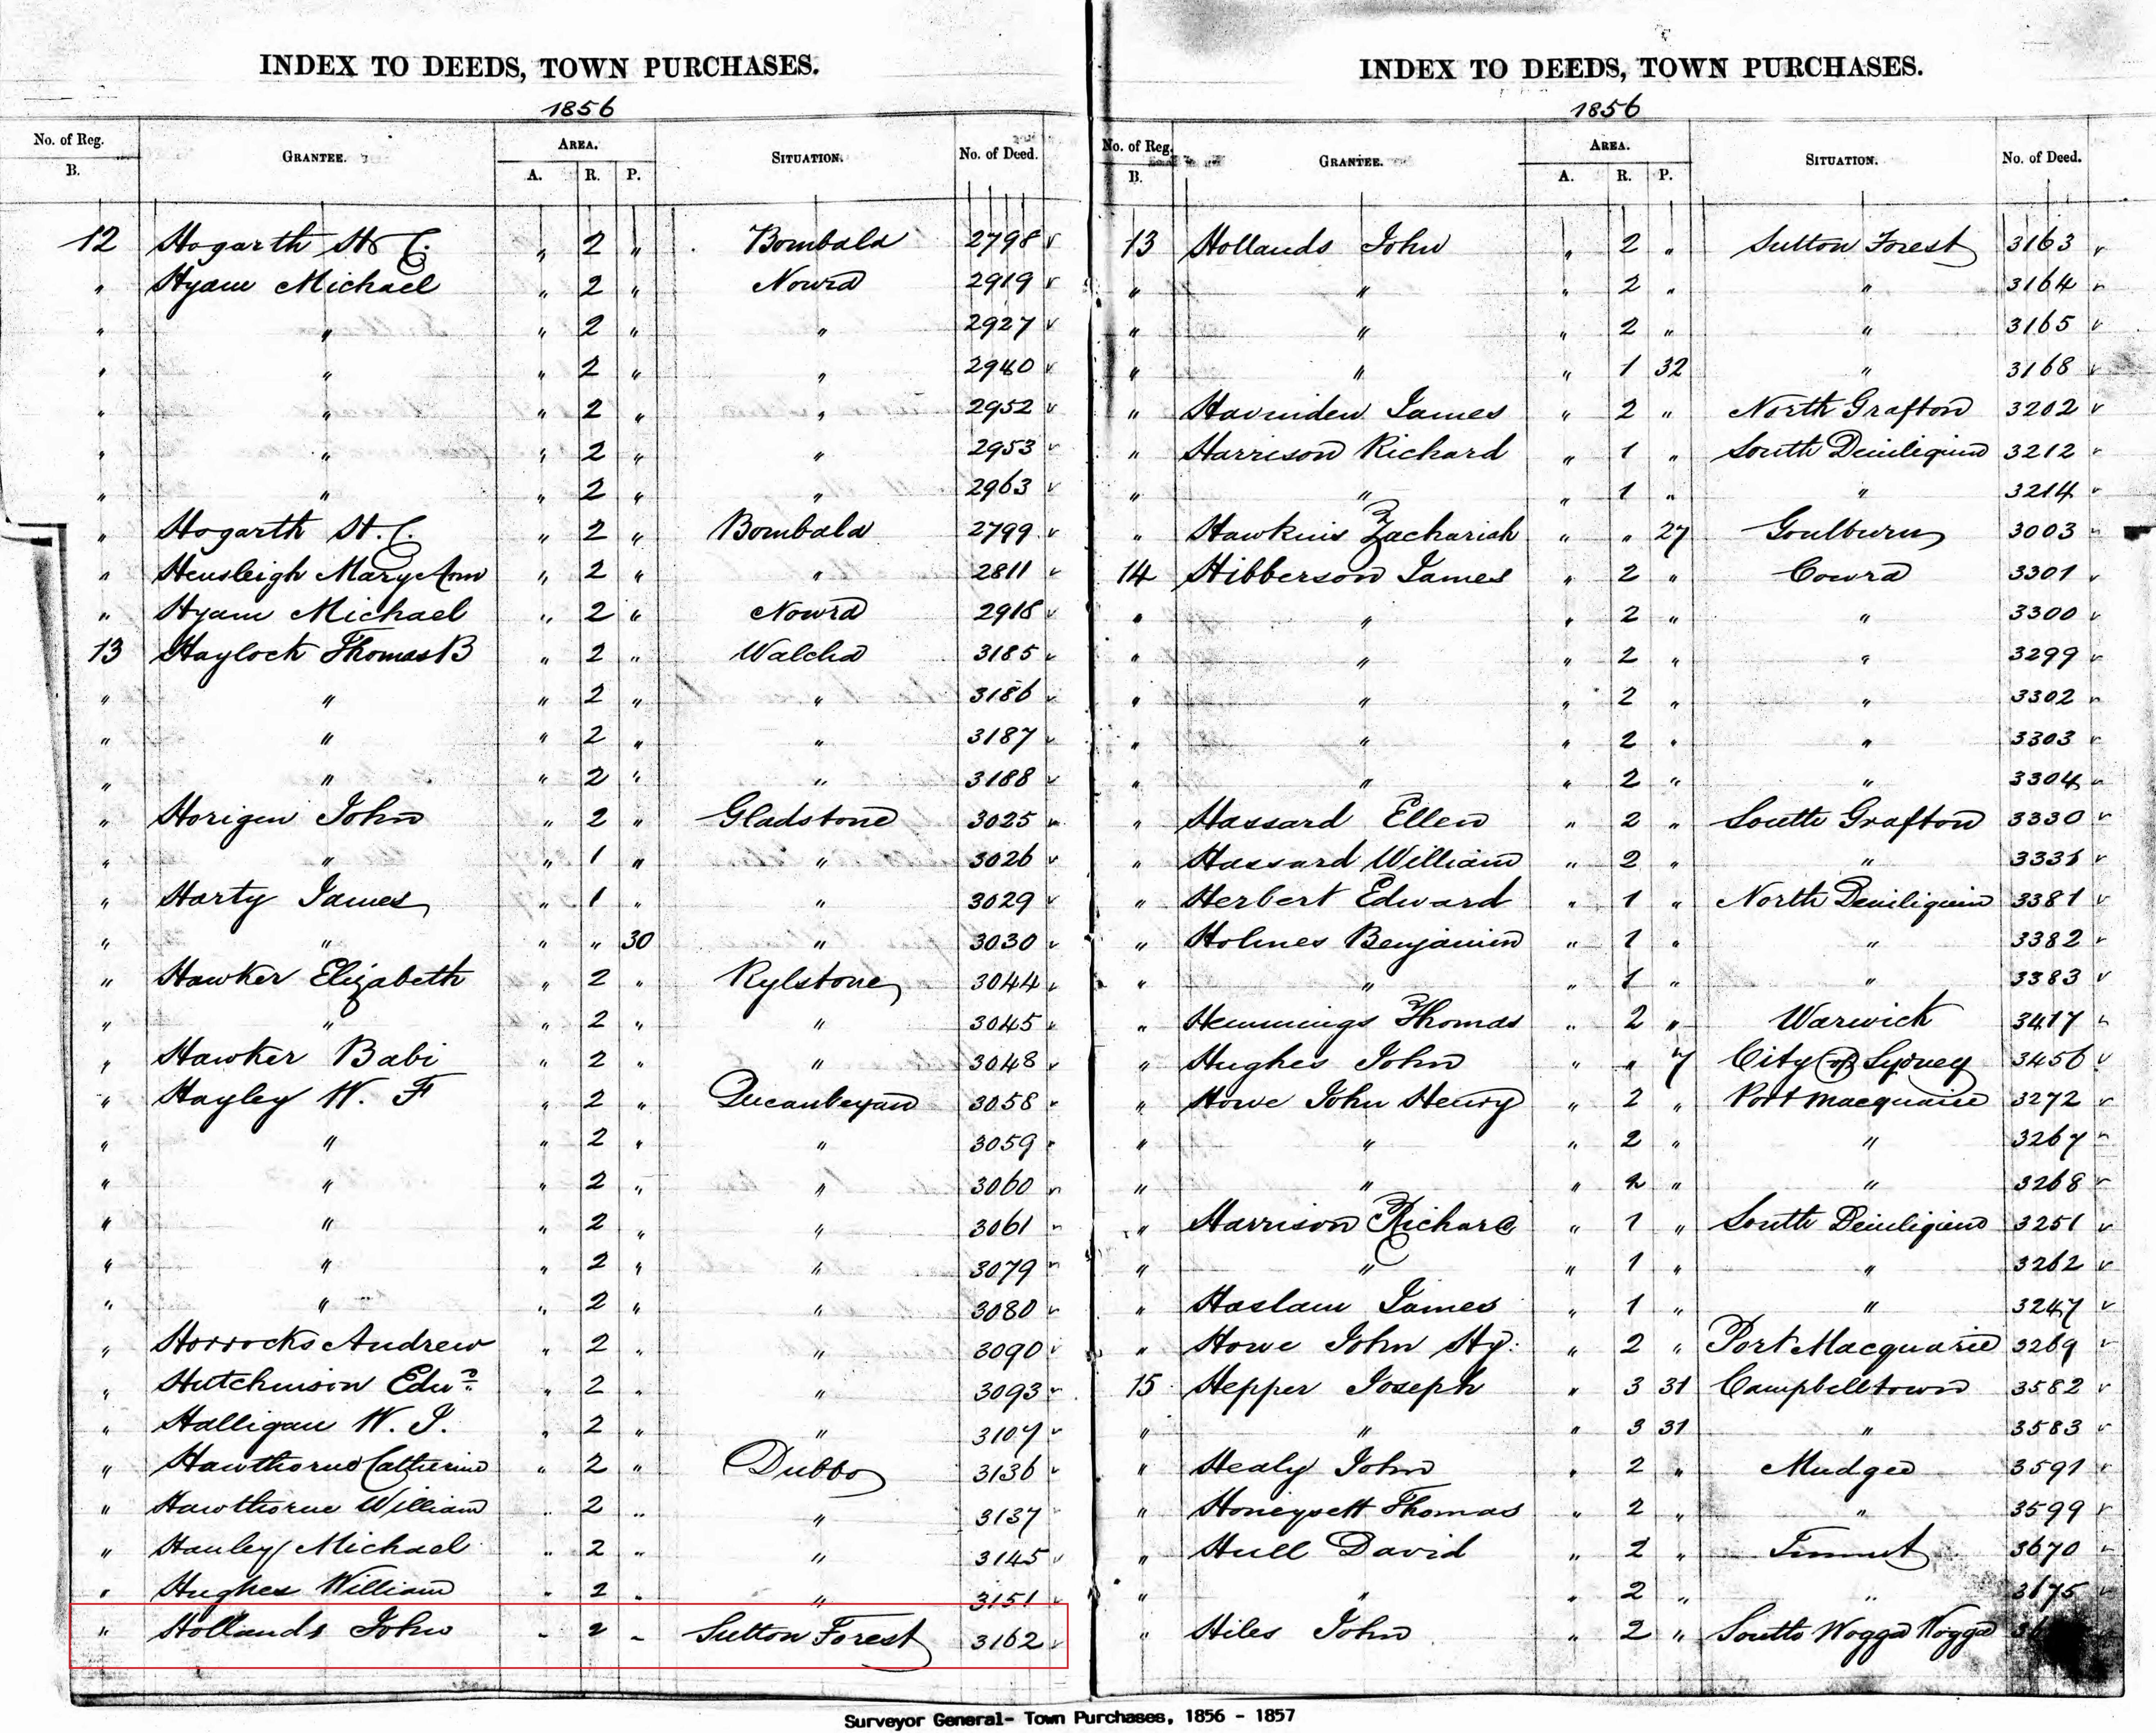 INDEX TO DEEDS, TOWN PURCHASES.
1856
No. of Reg. B. GRANTEE. AREA. A. R. P. SITUATION. No. of Deed.
12 Hogarth H C. " 2 " Bombala 2798
" Hyam Michael " 2 " Nowra 2919
" " " 2 " " 2927
" " " 2 " " 2940
" " " 2 " " 2952
" " " 2 " " 2953
" " " 2 " " 2963
" Hogarth H. C. " 2 " Bombala 2799
" Hensleigh Mary Ann " 2 " " 2811
" Hyam Michael " 2 " Nowra 2918
13 Haylock Thomas B " 2 " Walcha 3185
" " " 2 " " 3186
" " " 2 " " 3187
" " " 2 " " 3188
" Horigin John " 2 " Gladstone 3025
" " " 1 " " 3026
" Harty James " 1 " " 3029
" " " " 30 " 3030
" Hawker Elizabeth " 2 " Rylstone 3044
" " " 2 " " 3045
" Hawker Babi " 2 " " 3048
" Hayley W. F " 2 " Queanbeyan 3058
" " " 2 " " 3059
" " " 2 " " 3060
" " " 2 " " 3061
" " " 2 " " 3079
" " " 2 " " 3080
" Horrocks Andrew " 2 " " 3090
" Hutchinson Edwd " 2 " " 3093
" Halligan W. J. " 2 " " 3107
" Hawthorne Catherine " 2 " Dubbo 3136
" Hawthorne William " 2 " " 3137
" Hanley Michael " 2 " " 3145
" Hughes William " 2 " " 3151
" Hollands John " 2 " Sutton Forest 3162
INDEX TO DEEDS, TOWN PURCHASES.
1856
No. of Reg. B. GRANTEE. AREA. A. R. P. SITUATION. No. of Deed.
13 Hollands John " 2 " Sutton Forest 3163
" " " 2 " " 3164
" " " 2 " " 3165
" " " 1 32 " 3168
" James " 2 " North Grafton 3202
" Harrison Richard " 1 " South Deniliquin 3212
" " " 1 " " 3214
" Hawkins Zachariah " " 27 Goulburn 3003
14 Hibberson James " 2 " Cowra 3301
" " " 2 " " 3300
" " " 2 " " 3299
" " " 2 " " 3302
" " " 2 " " 3303
" " " 2 " " 3304
" Hassard Ellen " 2 " South Grafton 3330
" Hassard William " 2 " " 3331
" Herbert Edward " 1 " North Deniliquin 3381
" Holmes Benjamin " 1 " " 3382
" " " 1 " " 3383
" Hemmings Thomas " 2 " Warwick 3417
" Hughes John " " 7 City of Sydney 3456
" Howe John Henry " 2 " Port Macquarie 3272
" " " 2 " " 3267
" " " 2 " " 3268
" Harrison Richard " 1 " South Deniliquin 3251
" " " 1 " " 3262
" Haslam James " 1 " " 3247
" Howe John Hy. " 2 " Port Macquarie 3269
15 Hepper Joseph " 3 31 Campbelltown 3582
" " " 3 31 " 3583
" Healy John " 2 " Mudgee 3591
" Honeysett Thomas " 2 " " 3599
" Hull David " 2 " Tumut 3670
" " " 2 " " 3675
" Hiles John " 2 " South Wagga Wagga
Surveyor General- Town Purchases, 1856 - 1857